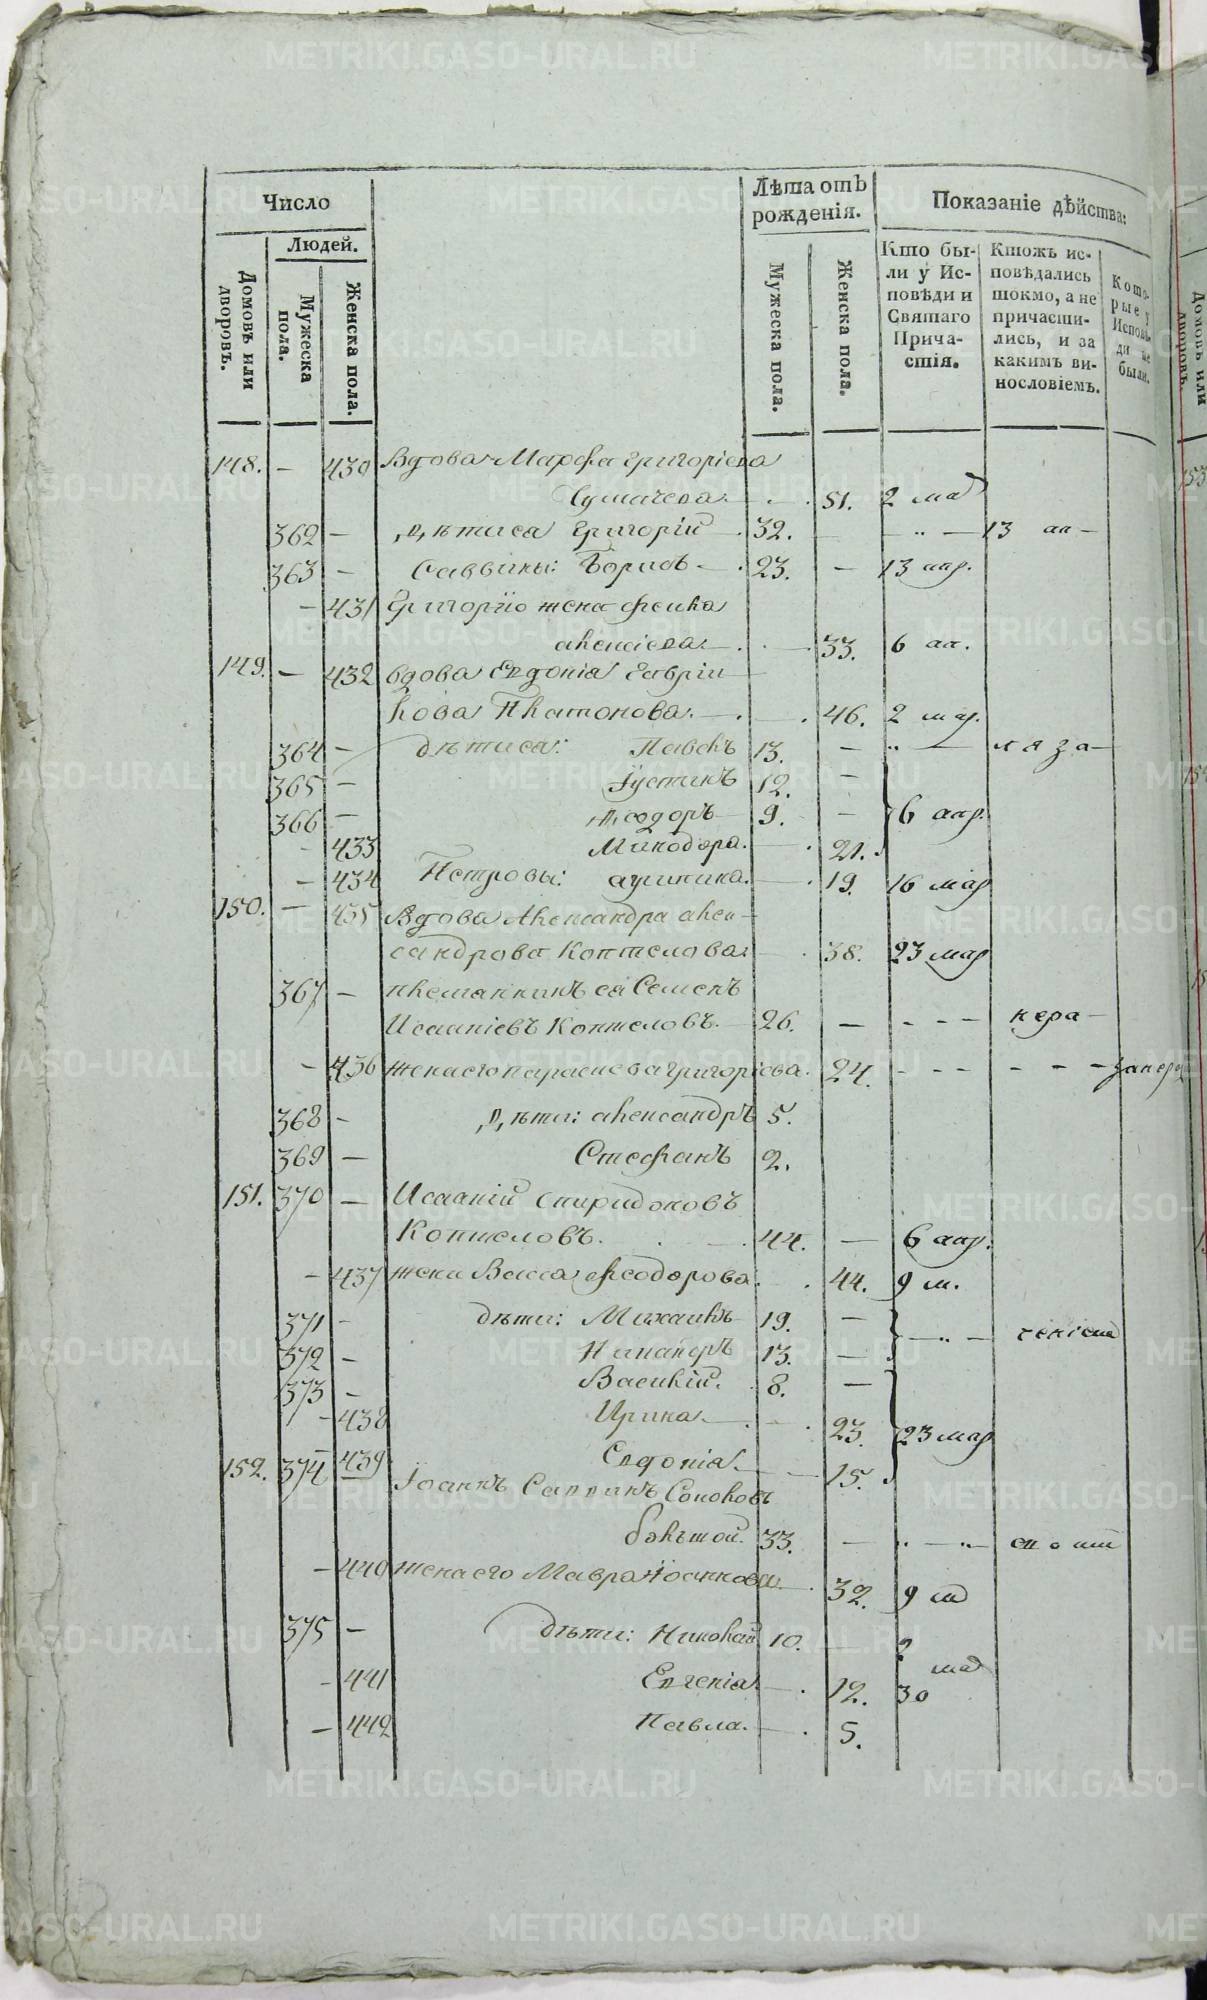 Число
Лѣта отъ рожденія.
Показаніе дѣйства:
Людей.
Домовъ или дворовъ.
Мужеска пола.
Женска пола.
Мужеска пола.
Женска пола.
Кто были у Исповѣди и Святаго Причастія.
Ктожъ исповѣдались токмо, а не причастились, и за какимъ винословіемъ.
Которые у Исповѣди не были.
148. — 430 Вдова Марфа Григоріева
51. 2 мар
362 — Дѣти са Григорій 32. — 13 ап
363 — Саввины: Борисъ 23. — 13 апр.
— 431 Григорію жена Феκла
33. 6 ап.
149. — 432 вдова Евдокія Гаврии
лова Платонова. 46. 2 мар.
364 — дѣти са: Павелъ 13. —
365 — Іустинъ 12. —
366 — Ѳеодоръ 9. — 6 апр.
— 433 Минодора. 21.
— 434 Петровы: 19. 16 мар
150. — 435 Вдова Александра Алек
сандрова Коптелова. 38. 23 мар
367 — племянникъ ея Семенъ
Исаакіевъ Коптеловъ. 26. — нера
— 436 жена его Параскева Григоріева. 24.
368 — Дѣти: Александръ 5.
369 — Стефанъ 2.
151. 370 — Исаакій Спиридоновъ
Коптеловъ. 44. — 6 апр.
— 437 жена Васса Феодорова. 44. 9 м.
371 — дѣти: Михаилъ 19. —
372 — Никаноръ 13. —
373 — Василій. 8. —
— 438 Ирина. 23. 23 мар
439 Евдокія. 15.
152. 374 — Іоаннъ Саввинъ Соколовъ
большой. 33. —
— 440 жена его Мавра Іоакимова 32. 9 м
375 — дѣти: Николай 10. — 2
мар
— 441 Евгенія. 12. 30
— 442 Павла. 5.